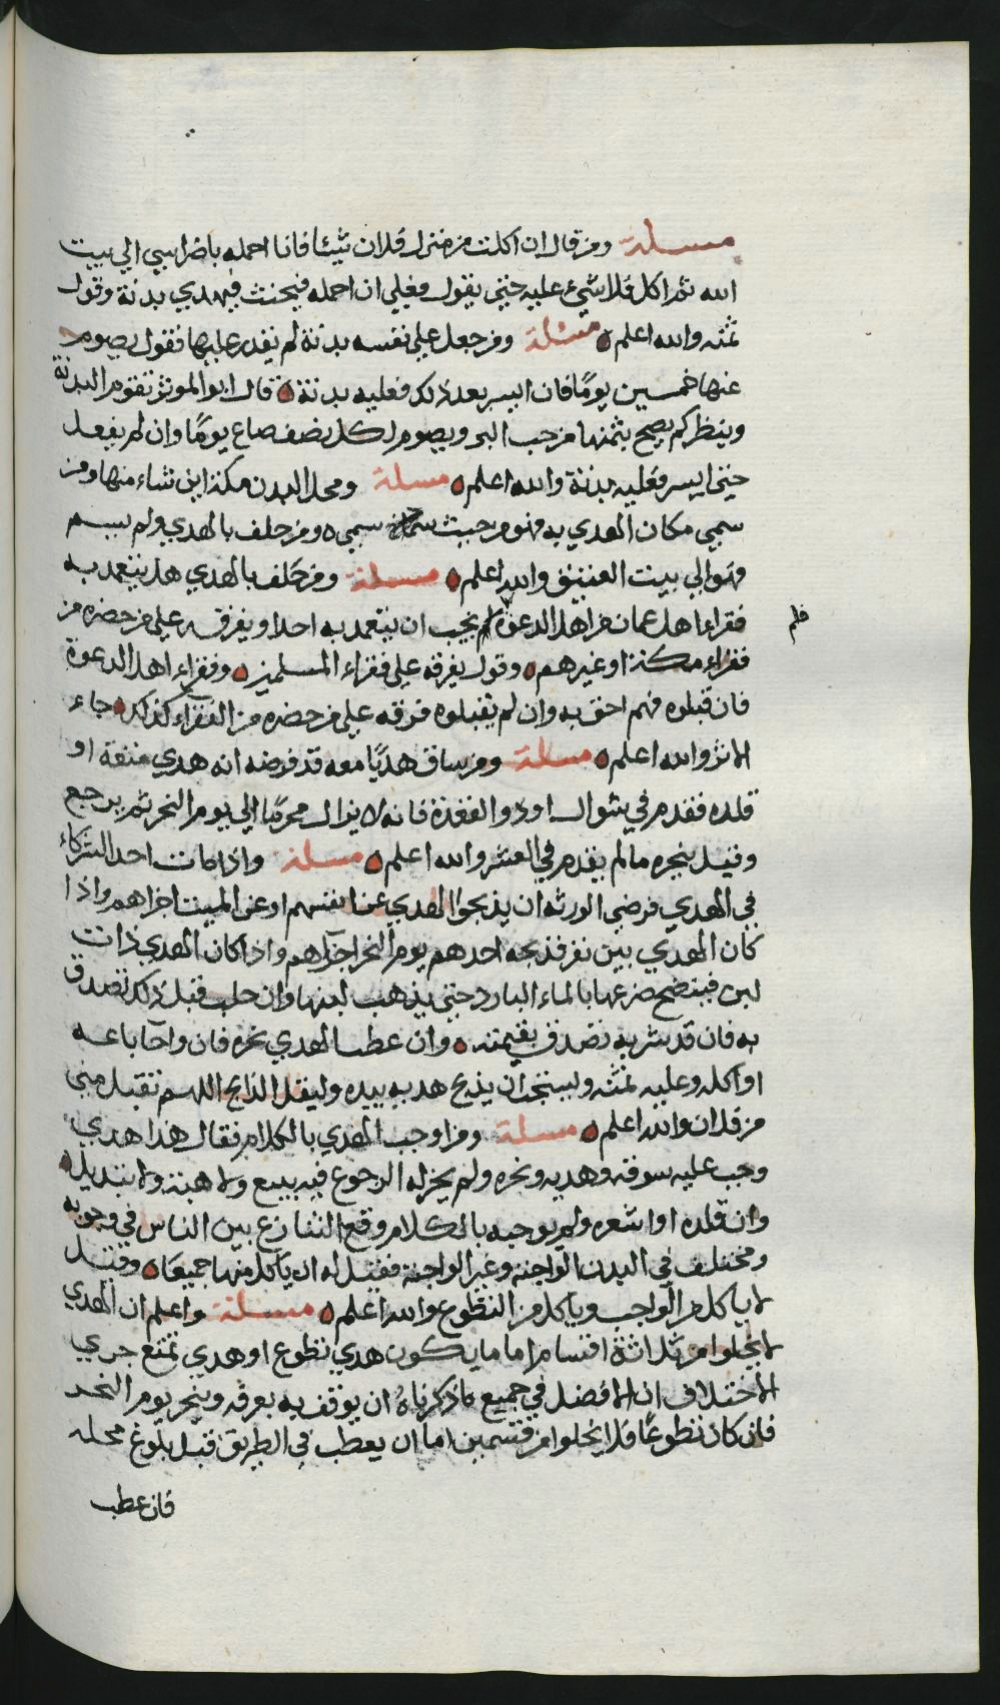 مسلة ومن قال ان اكلت من منزل فلان شيئا فانا احمله باضراسي الي بيت
الله ثم اكل فلا شيء عليه حتى يقول فعلي ان احمله فيحنث فيهدي بدنة وقول
ثمنه والله اعلم مسئلة ومن جعل علي نفسه بدنة لم يقدر عليها فقول يصوم
عنها خمسين يومًا فان ايسر بعد ذلك فعليه بدنة قال ابو الموثر تقوم البدنة
وينظر كم يصح بثمنها من حب البر ويصوم لكل نصف صاع يومًا وان لم يفعل
حتى ايسر فعليه بدنة والله اعلم مسلة ومحل البدن مكة اين شاء منها ومن
سمي مكان الهدي به فهو من حيث سمي ومن حلف بالهدي ولم يسم
فهو الي بيت العتيق والله اعلم مسلة ومن حلف بالهدي هل يتعمد به
فقراء اهل عمان من اهل الدعوة لم يجب ان يتعمد به احدا ويفرقه علي من حضره من
فلم
فقراء مكة او غيرهم وقول يفرقه علي فقراء المسلمين وفقراء اهل الدعوة
فان قبلوه فهم احق به وان لم يقبلوه فرقه علي من حضره من الفقراء كذلك جاء
الاثر والله اعلم مسلة ومن ساق هديًا معه قد فرضه انه هدي متعة او
قلده فقدم في شوال او ذو القعدة فانه لا يزال محرمًا الي يوم النحر ثم يرجع
وقيل ينحره ما لم يقدم في العشر والله اعلم مسلة واذا مات احد الشركاء
في الهدي فرضي الورثه ان يذبحوا الهدي عن انفسهم او عن الميت اجزاهم واذا
كان الهدي بين نفر فذبحه احدهم يوم النحر اجزاهم واذا كان الهدي ذات
لبن فينضح ضرعها بالماء البارد حتى يذهب لبنها وان حلب قبل ذلك تصدق
به فان قد شربه تصدق بقيمته وان عطب الهدي نحره فان واحآ باعه
او اكله وعليه ثمنه ويستحب ان يذبح هديه بيده وليقل الذابح اللهم تقبل مني
من فلان والله اعلم مسلة ومن اوجب الهدي بالكلام فقال هذا هدي
وجب عليه سوقه وهديه ونحره ولم يجز له الرجوع فيه ببيع ولا هبة ولا تبديل
وان قلده او اشعره ولم يوجبه بالكلام وقع التنازع بين الناس في وجوبه
ومختلف في البدن الواجبة وغير الواجبة فقيل له ان ياكل منها جميعًا وقيل
لا ياكل من الواجب وياكل من التطوع والله اعلم مسئلة واعلم ان الهدي
لا يخلوا من ثلاثة اقسام اما ما يكون هدي تطوع او هدي تمتع جري
الاختلاف ان الافضل في جميع ما ذكرناه ان يوقف به بعرفه وينحر يوم النحر
فان كان تطوعًا فلا يخلوا من قسمين اما ان يعطب في الطريق قبل بلوغ محله
فان عطب